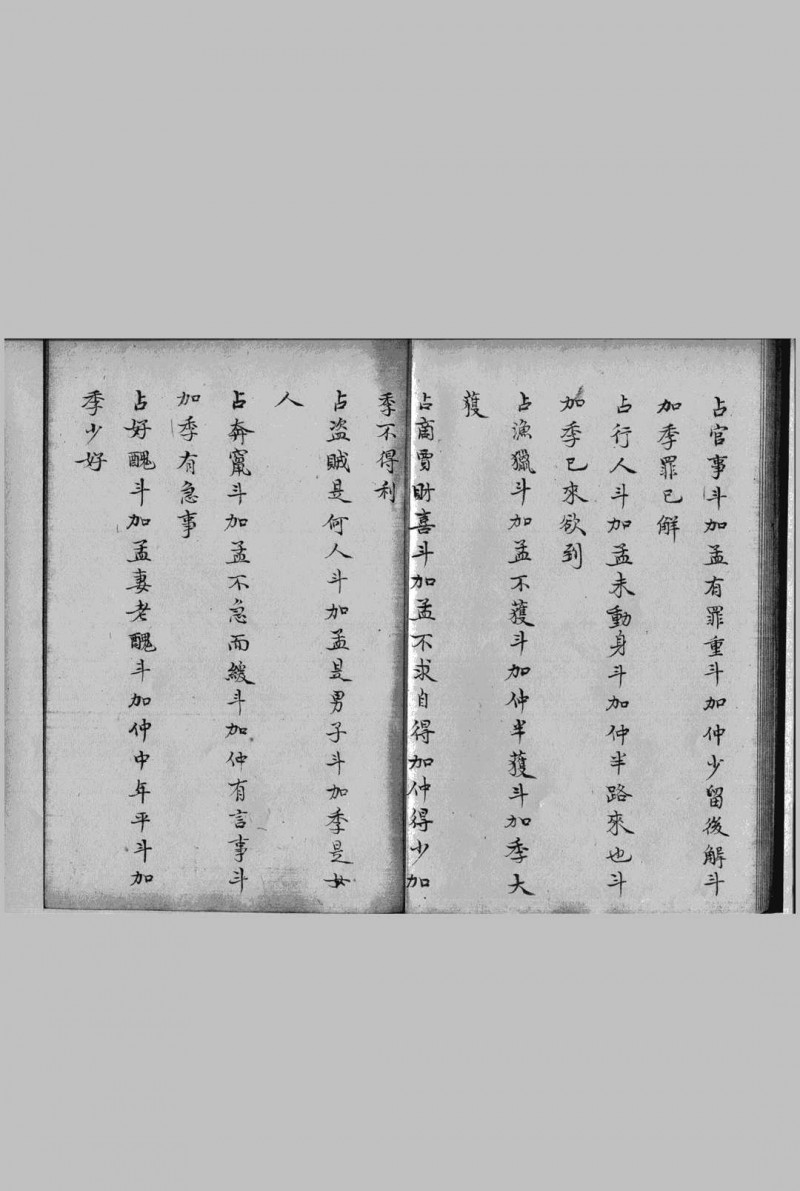 占官事斗加孟有罪重斗加仲少留後解斗
加季罪已解
占行人斗加孟未動身斗加仲半路來也斗
加季已來欲到
占漁獵斗加孟不獲斗加仲半獲斗加季大
獲
占商賈財喜斗加孟不求自得加仲得少加
季不得利
占盜賊是何人斗加孟是男子斗加季是女
人
占奔竄斗加孟不急而緩斗加仲有言事斗
加季有急事
占好醜斗加孟妻老醜斗加仲中年平斗加
季少好